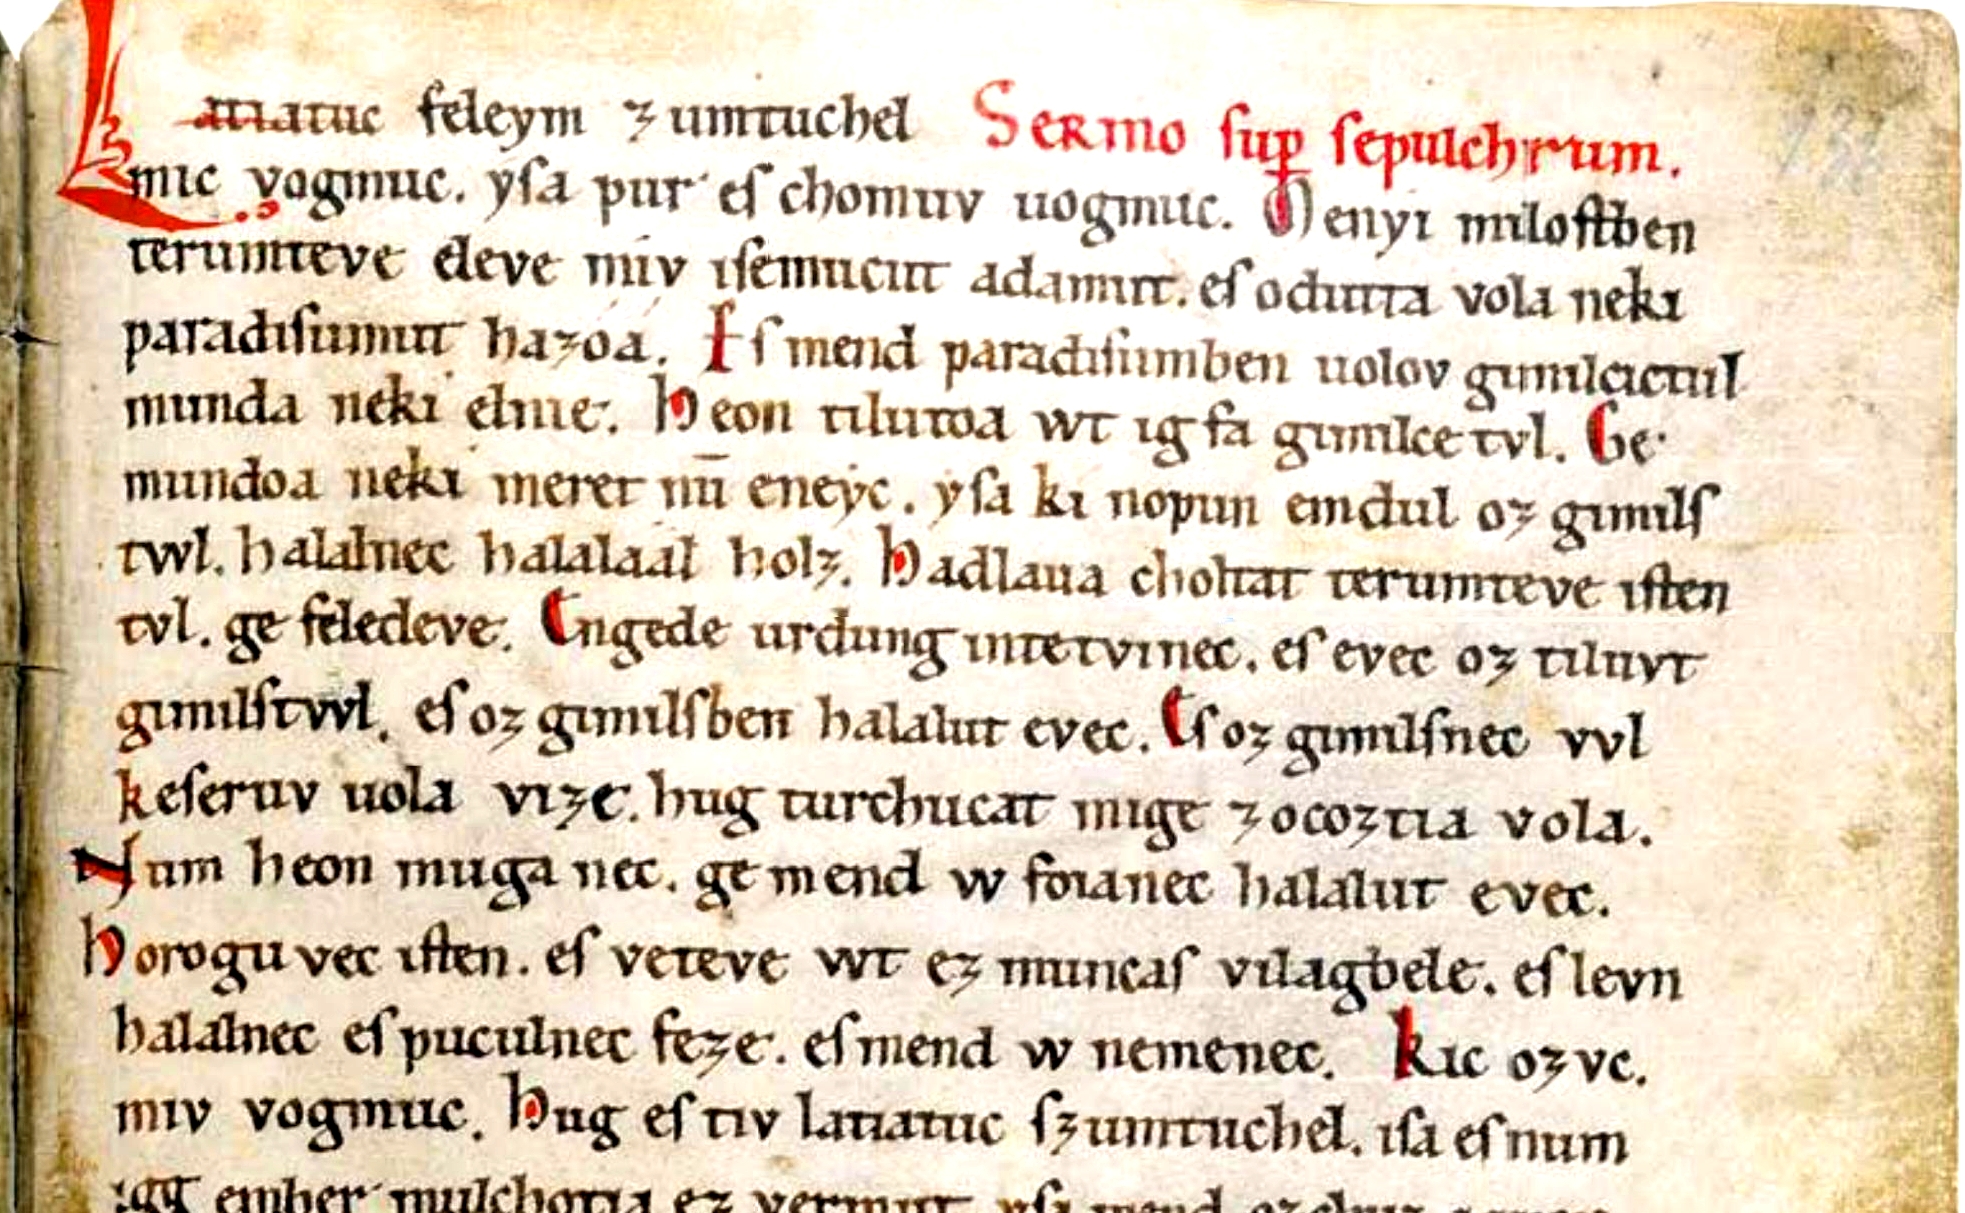 Latiatuc feleym zumtuchel Sermo sup sepulchrum.
mic vogmuc. ysa pur es chomuv uogmuc. Menyi milostben
terumteve eleve miv isemucut adamut. es odutta vola neki
paradisumut hazóá. Es mend paradisumben uolov gimilcictul
munda neki elnie. Heon tilutoa wt ig fa gimilce tvl. Ge
mundoa neki meret nū eneyc. ysa ki nopun emdul oz gimils
twl. halalnec halaláál holz. Hadlaua choltat terumteve isten
tvl. ge feledeve. Engede urdung intetvinec. es evec oz tiluvt
gimilstwl. es oz gimilsben halalut evec. Es oz gimilsnec vvl
keseruv uola vize. hug turchucat mige zocoztia vola.
Num heon muga nec. ge mend w foianec halalut evec.
Horogu vec isten. es veteve wt ez muncas vilagbele. es levn
halalnec es puculnec feze. es mend w nemenec. Kic ozvc.
miv vogmuc. Hug es tiv latiatuc szumtuchel. isa es num
igg ember mulchotia ez vermut ysa mend